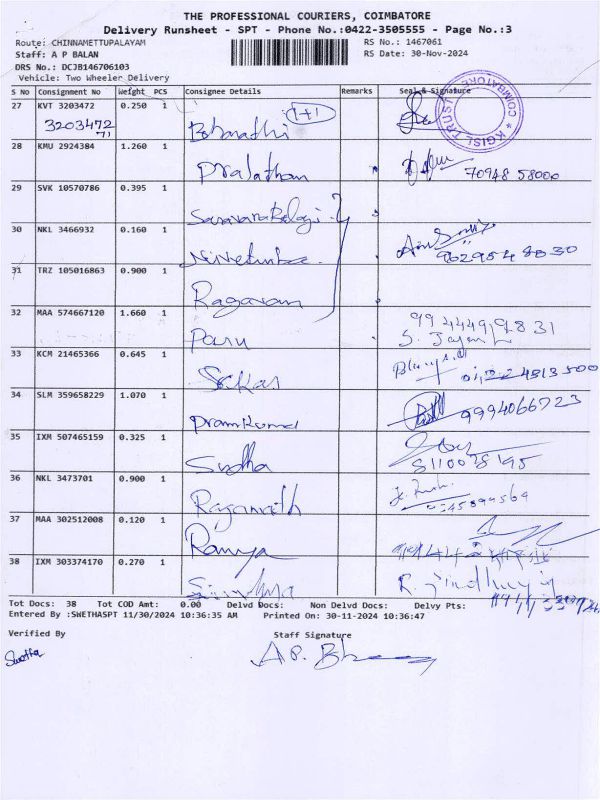 THE PROFESSIONAL COURIERS, COIMBATORE
Delivery Runsheet - SPT - Phone No.:0422-3505555 - Page No.:3
Route: CHINNAMETTUPALAYAM RS No.: 1467061
Staff: A P BALAN RS Date: 30-Nov-2024
DRS No.: DCJB146706103
Vehicle: Two Wheeler Delivery
S No Consignment No Weight PCS Consignee Details Remarks Seal & Signature
27 KVT 3203472 0.250 1 Bharathi 1+1
3203472
KGISL TRUST COIMBATORE
28 KMU 2924384 1.260 1 Pralathan 70948 58000
29 SVK 10570786 0.395 1 Saravana Balaji
30 NKL 3466932 0.160 1 Nivetha
31 TRZ 105016863 0.900 1 Ragavan
32 MAA 574667120 1.660 1 Paru
33 KCM 21465366 0.645 1 Sekar
34 SLM 359658229 1.070 1 Pramkumar 9994066723
35 IXM 507465159 0.325 1 Sudha
36 NKL 3473701 0.900 1
37 MAA 302512008 0.120 1 Ramya
38 IXM 303374170 0.270 1
Tot Docs: 38 Tot COD Amt: 0.00 Delvd Docs: Non Delvd Docs: Delvy Pts:
Entered By :SWETHASPT 11/30/2024 10:36:35 AM Printed On: 30-11-2024 10:36:47
Verified By Staff Signature
Swetha